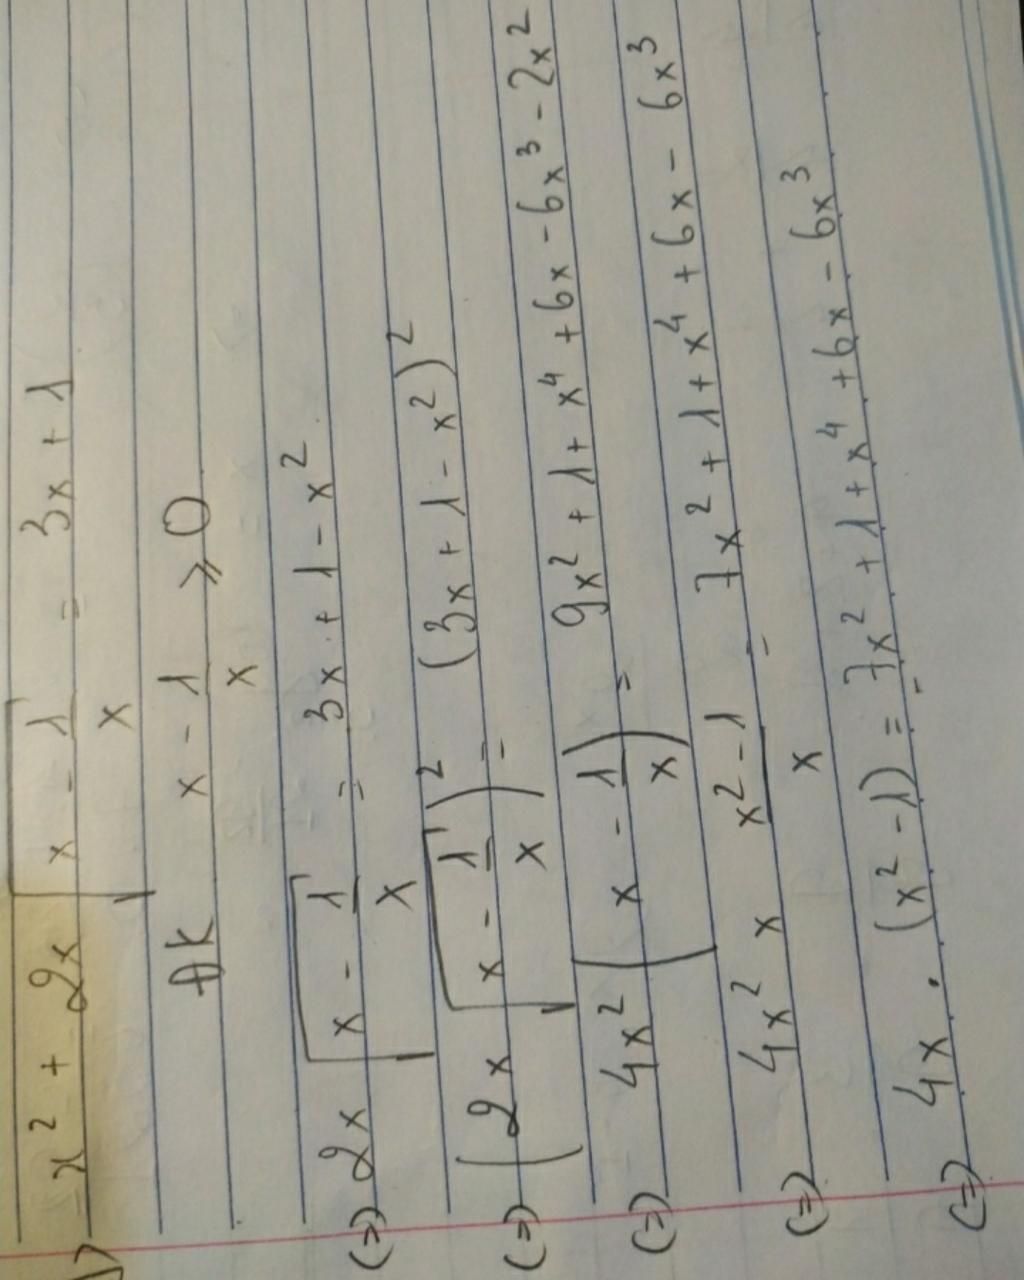 1) x² + 2x √(x - 1/x) = 3x + 1
ĐK x - 1/x ⩾ 0
(=) 2x √(x - 1/x) = 3x + 1 - x²
(=) (2x √(x - 1/x))² = (3x + 1 - x²)²
(=) 4x² (x - 1/x) = 9x² + 1 + x⁴ + 6x - 6x³ - 2x²
(=) 4x² x (x² - 1)/x = 7x² + 1 + x⁴ + 6x - 6x³
(=) 4x . (x² - 1) = 7x² + 1 + x⁴ + 6x - 6x³